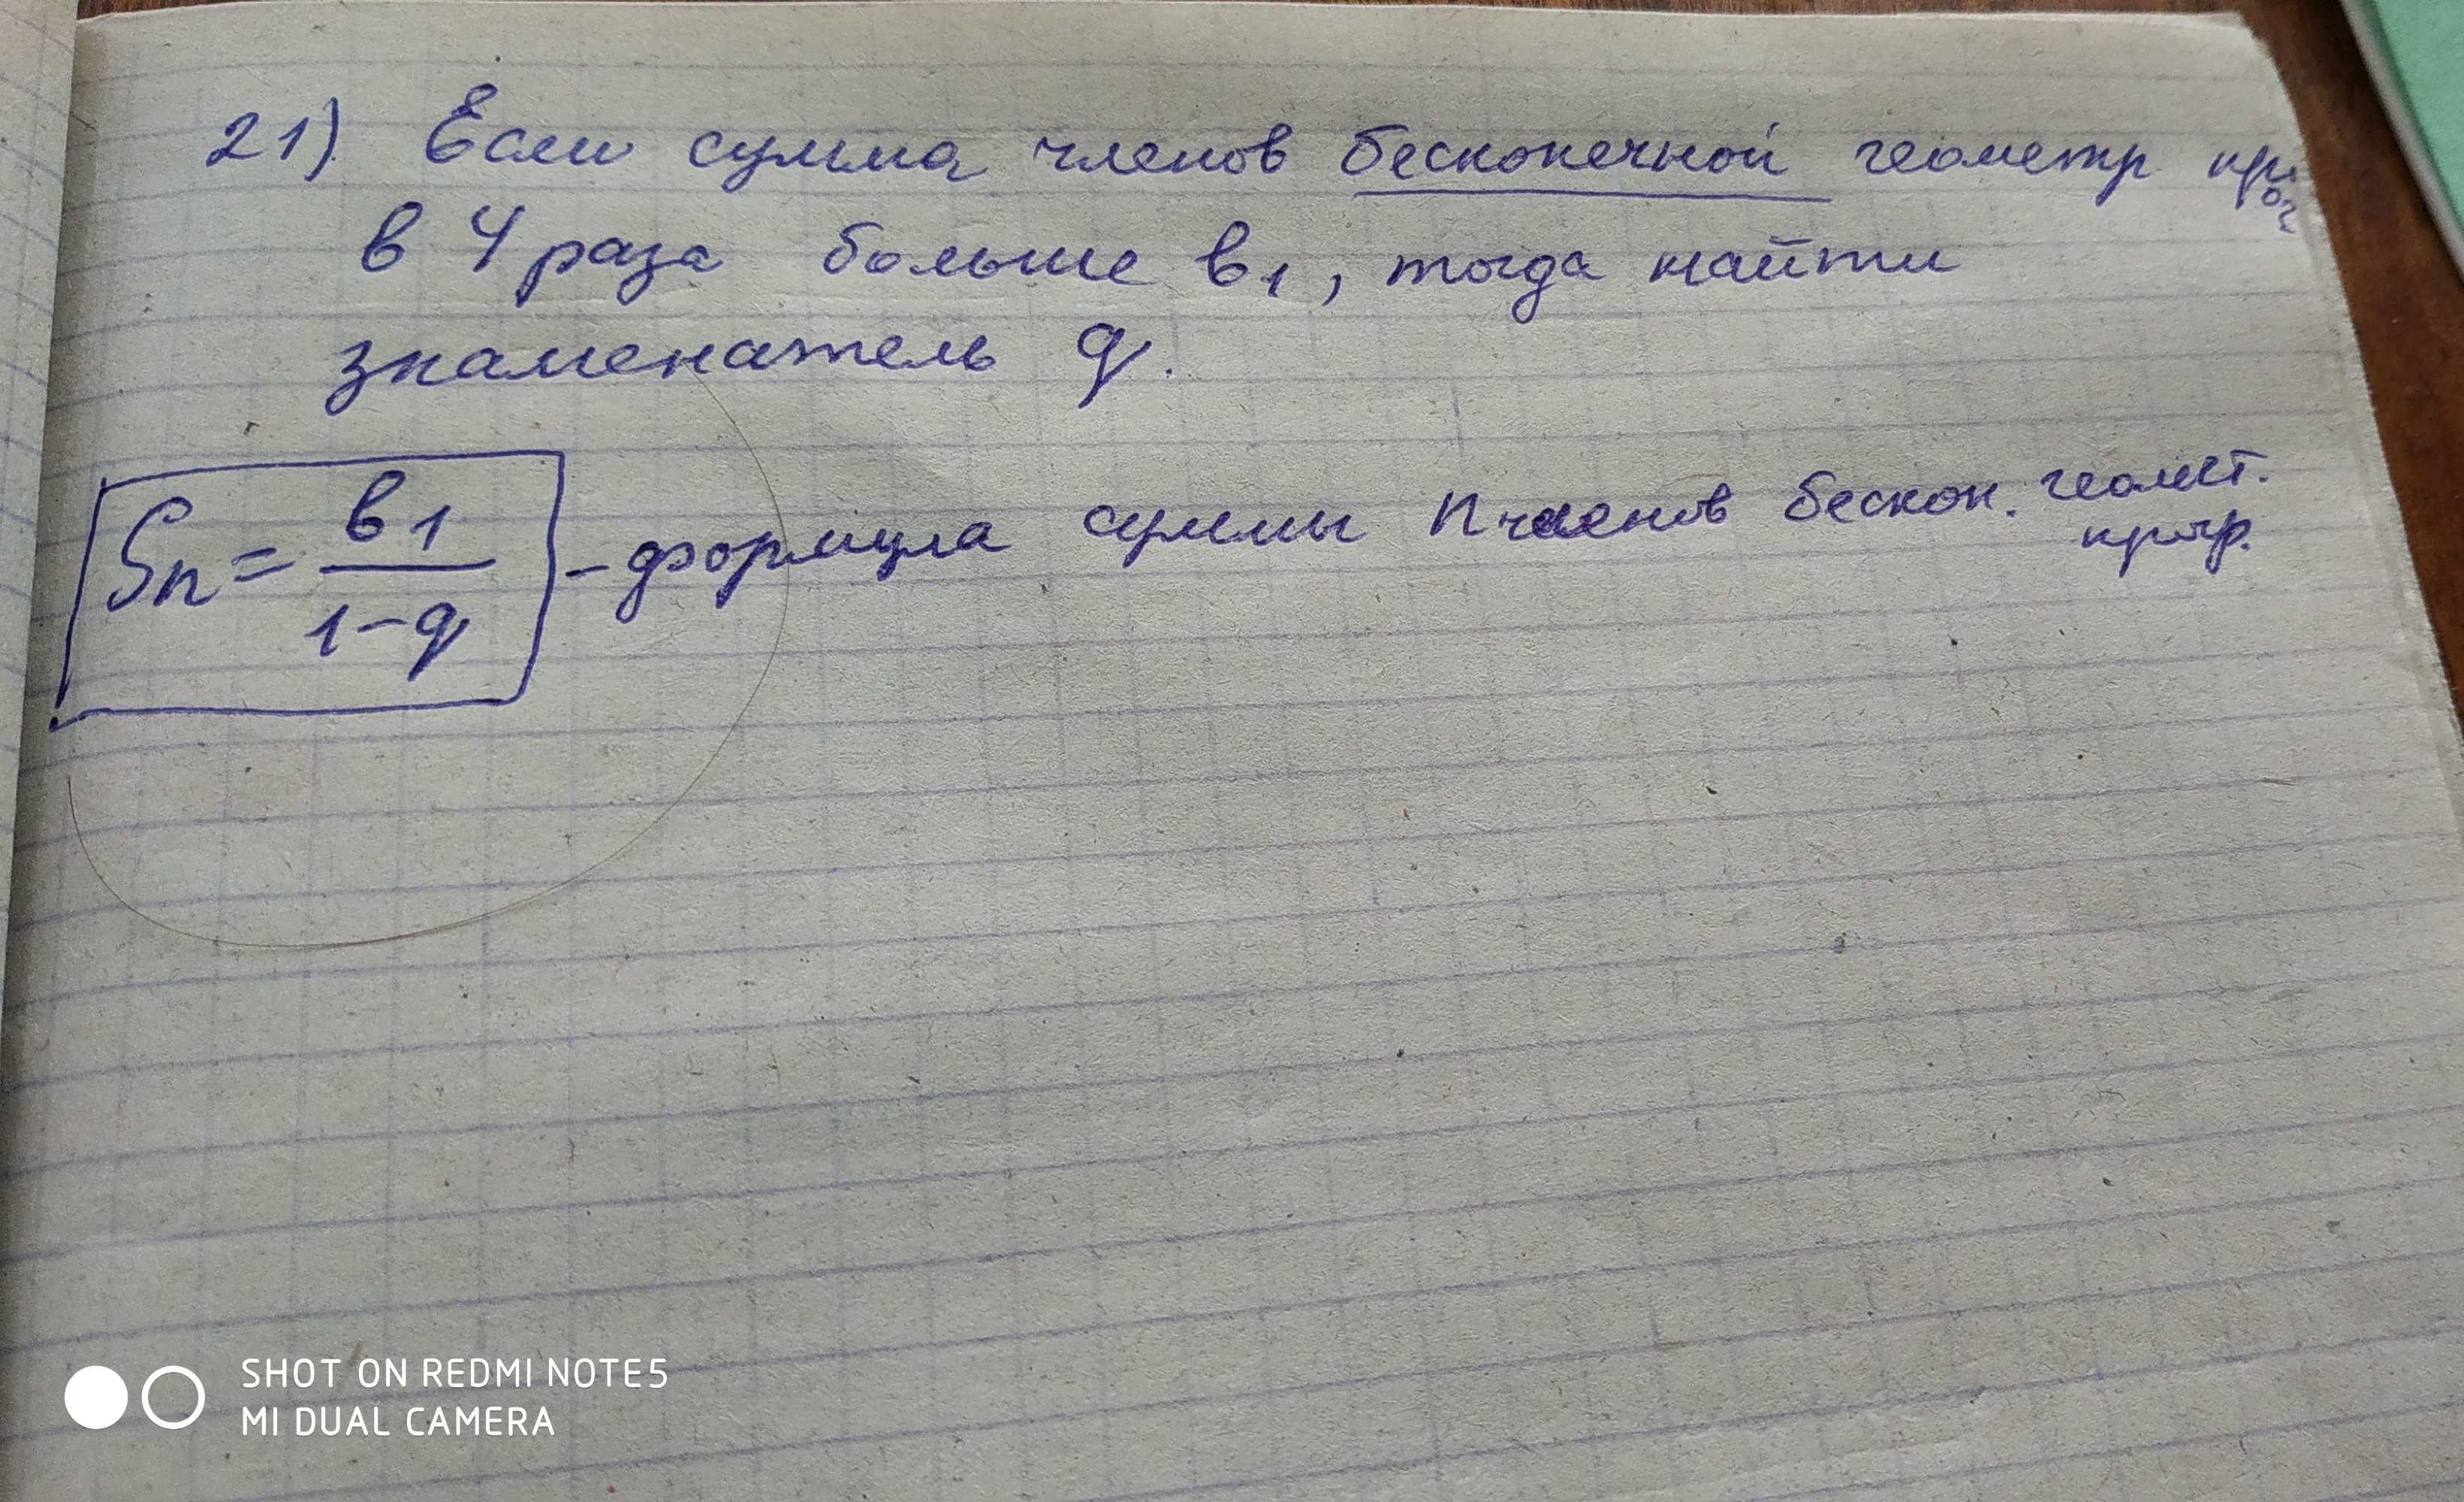 21) Если сумма членов бесконечной геометр прог
в 4 раза больше в1, тогда найти
знаменатель q.
Sn = в1 / 1-q - формула суммы n членов бескон. геомет. прогр.
SHOT ON REDMI NOTE 5
MI DUAL CAMERA